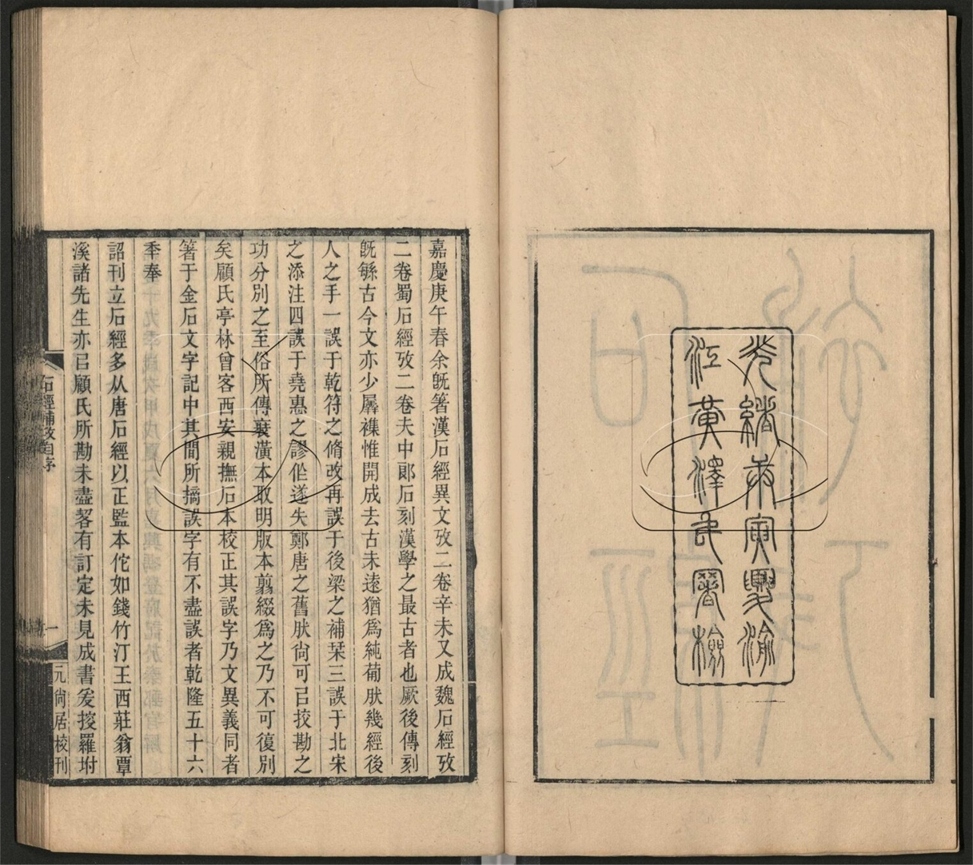 光緒庚寅夏渝
江黃澤民署檢
嘉慶庚午春余旣箸漢石經異文攷二卷辛未又成魏石經攷
二卷蜀石經攷二卷夫中郞石刻漢學之最古者也厥後傳刻
旣緐古今文亦少羼襍惟開成去古未逺猶爲純葡肰幾經後
人之手一誤于乾符之脩改再誤于後梁之補栞三誤于北宋
之添注四誤于堯惠之謬作遂失鄭唐之舊肰尙可㠯挍勘之
功分別之至俗所傳裱潢本取明版本翦綴爲之乃不可復別
矣顧氏亭林曾客西安親撫石本校正其誤字乃文異義同者
箸于金石文字記中其間所摘誤字有不盡誤者乾隆五十六
秊奉
詔刊立石經多从唐石經以正監本佗如錢竹汀王西莊翁覃
溪諸先生亦㠯顧氏所勘未盡畧有訂定未見成書爰搜羅坿
石經補攷自序
一
元尙居校刊